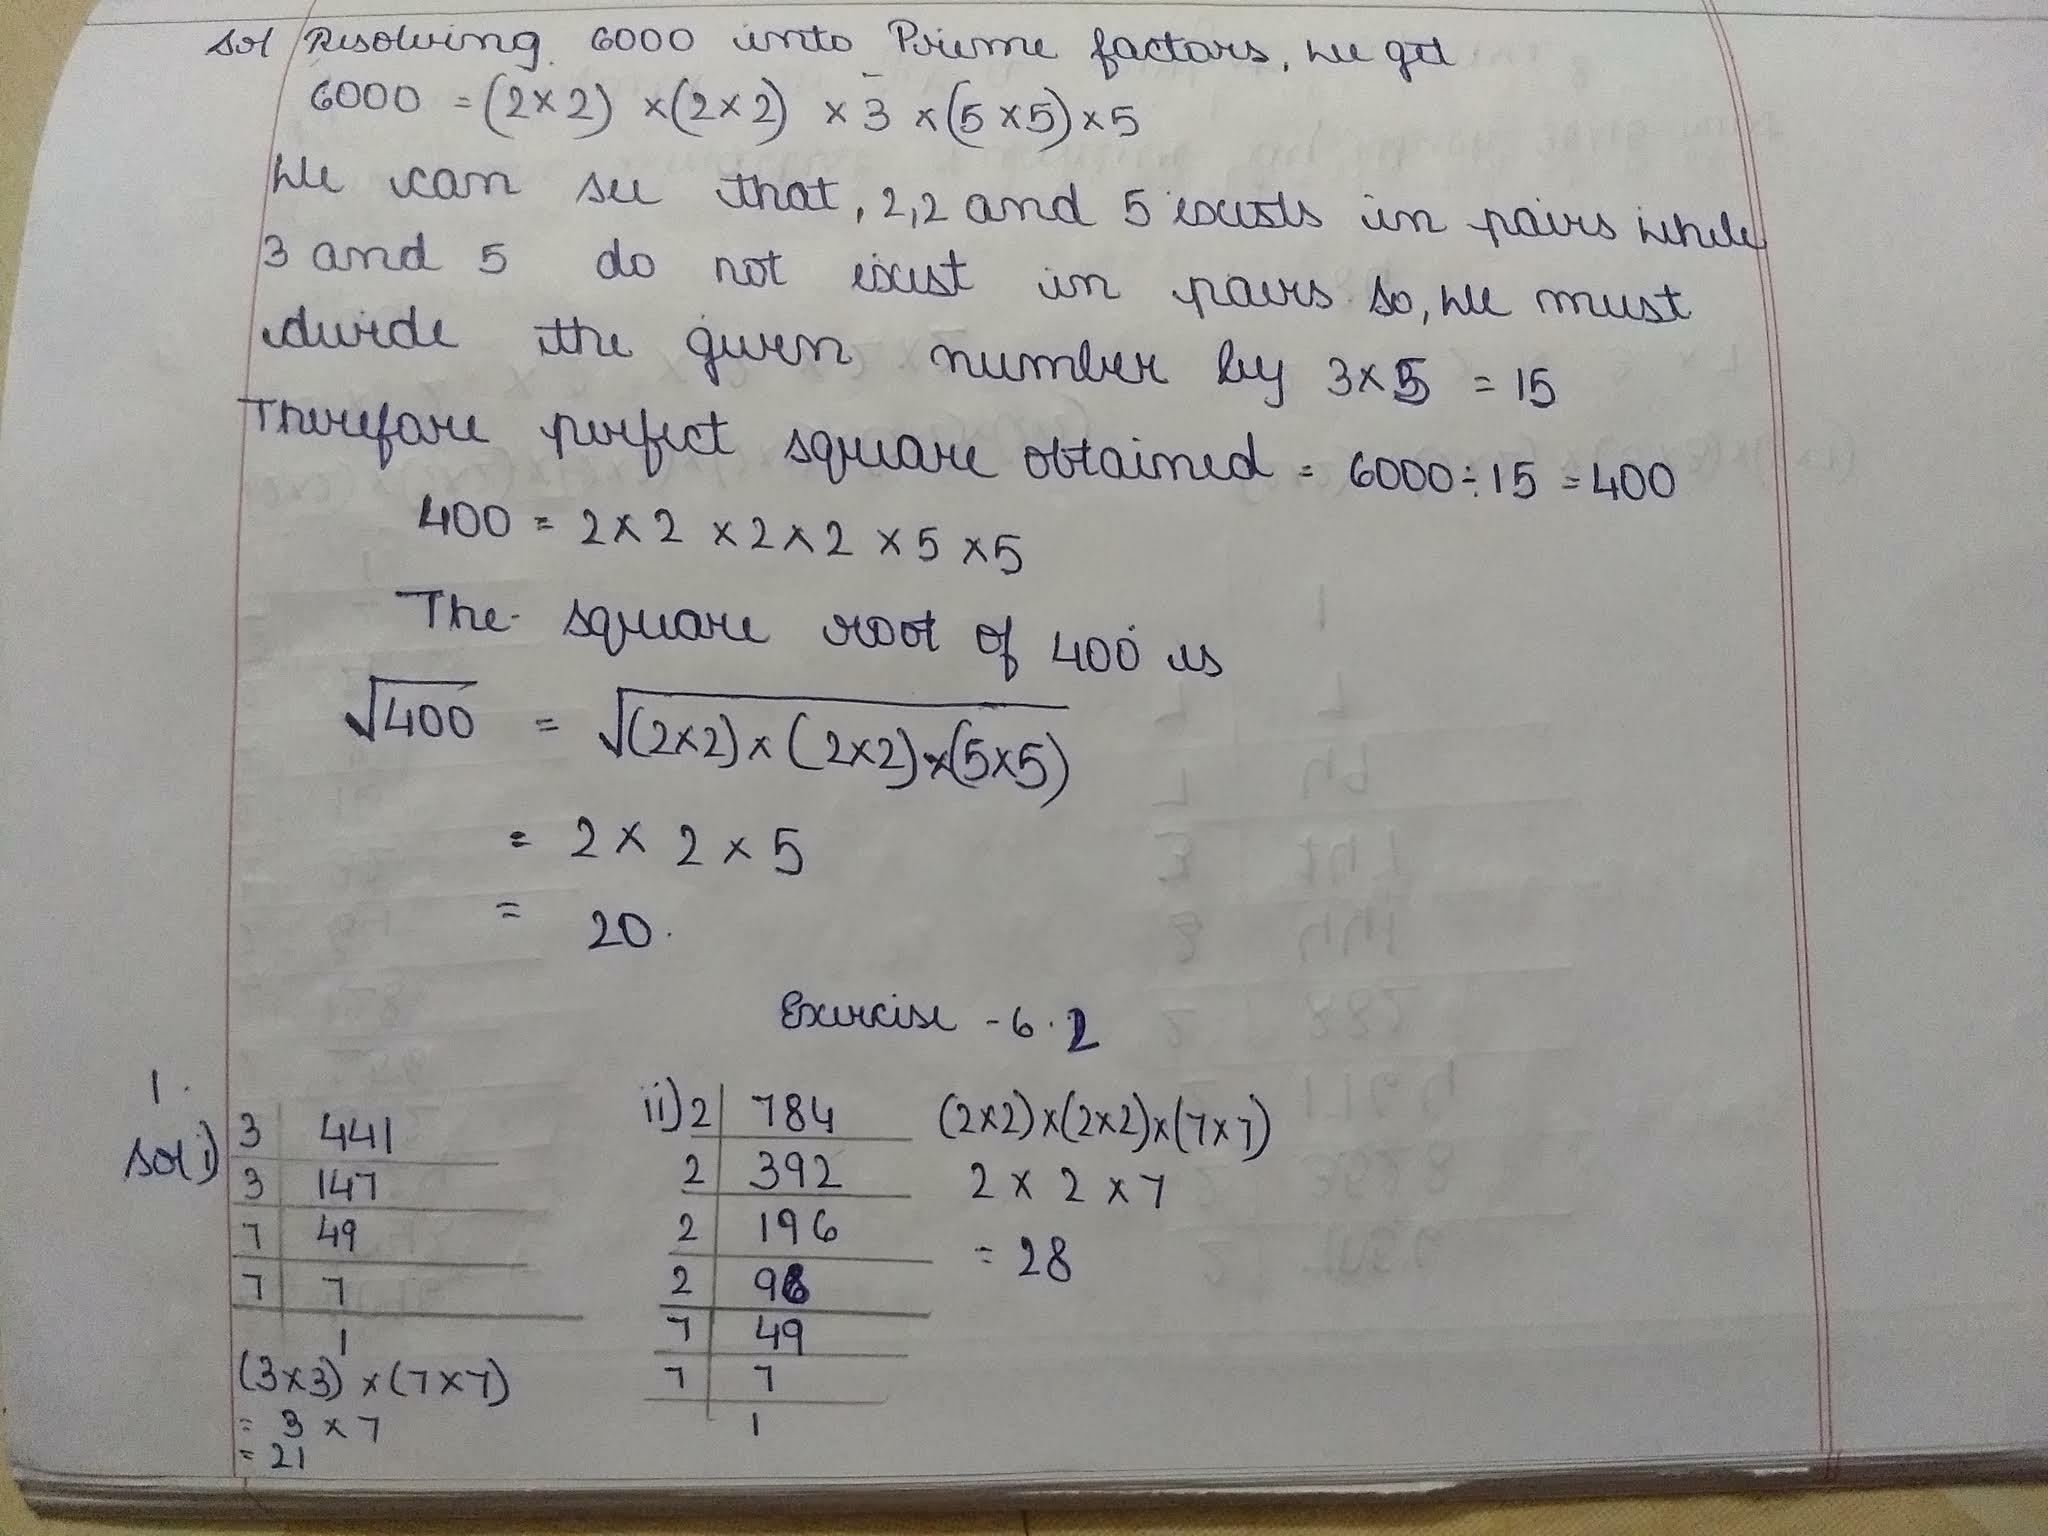 Sol Resolving 6000 into Prime factors, we get
6000 = (2×2) ×(2×2) × 3 ×(5×5)×5
We can see that, 2,2 and 5 exists in pairs while
3 and 5 do not exist in pairs so, we must
divide the given number by 3×5 = 15
Therefore perfect square obtained = 6000÷15 =400
400 = 2×2 ×2×2 ×5 ×5
The square root of 400 is
√400 = √(2×2)×(2×2)×(5×5)
= 2× 2×5
= 20.
Exercise -6.2
1.
Sol i) 3 | 441
3 | 147
7 | 49
7 | 7
1
(3×3) ×(7×7)
= 3×7
= 21
ii) 2 | 784
2 | 392
2 | 196
2 | 98
7 | 49
7 | 7
1
(2×2)×(2×2)×(7×7)
2 × 2 ×7
= 28